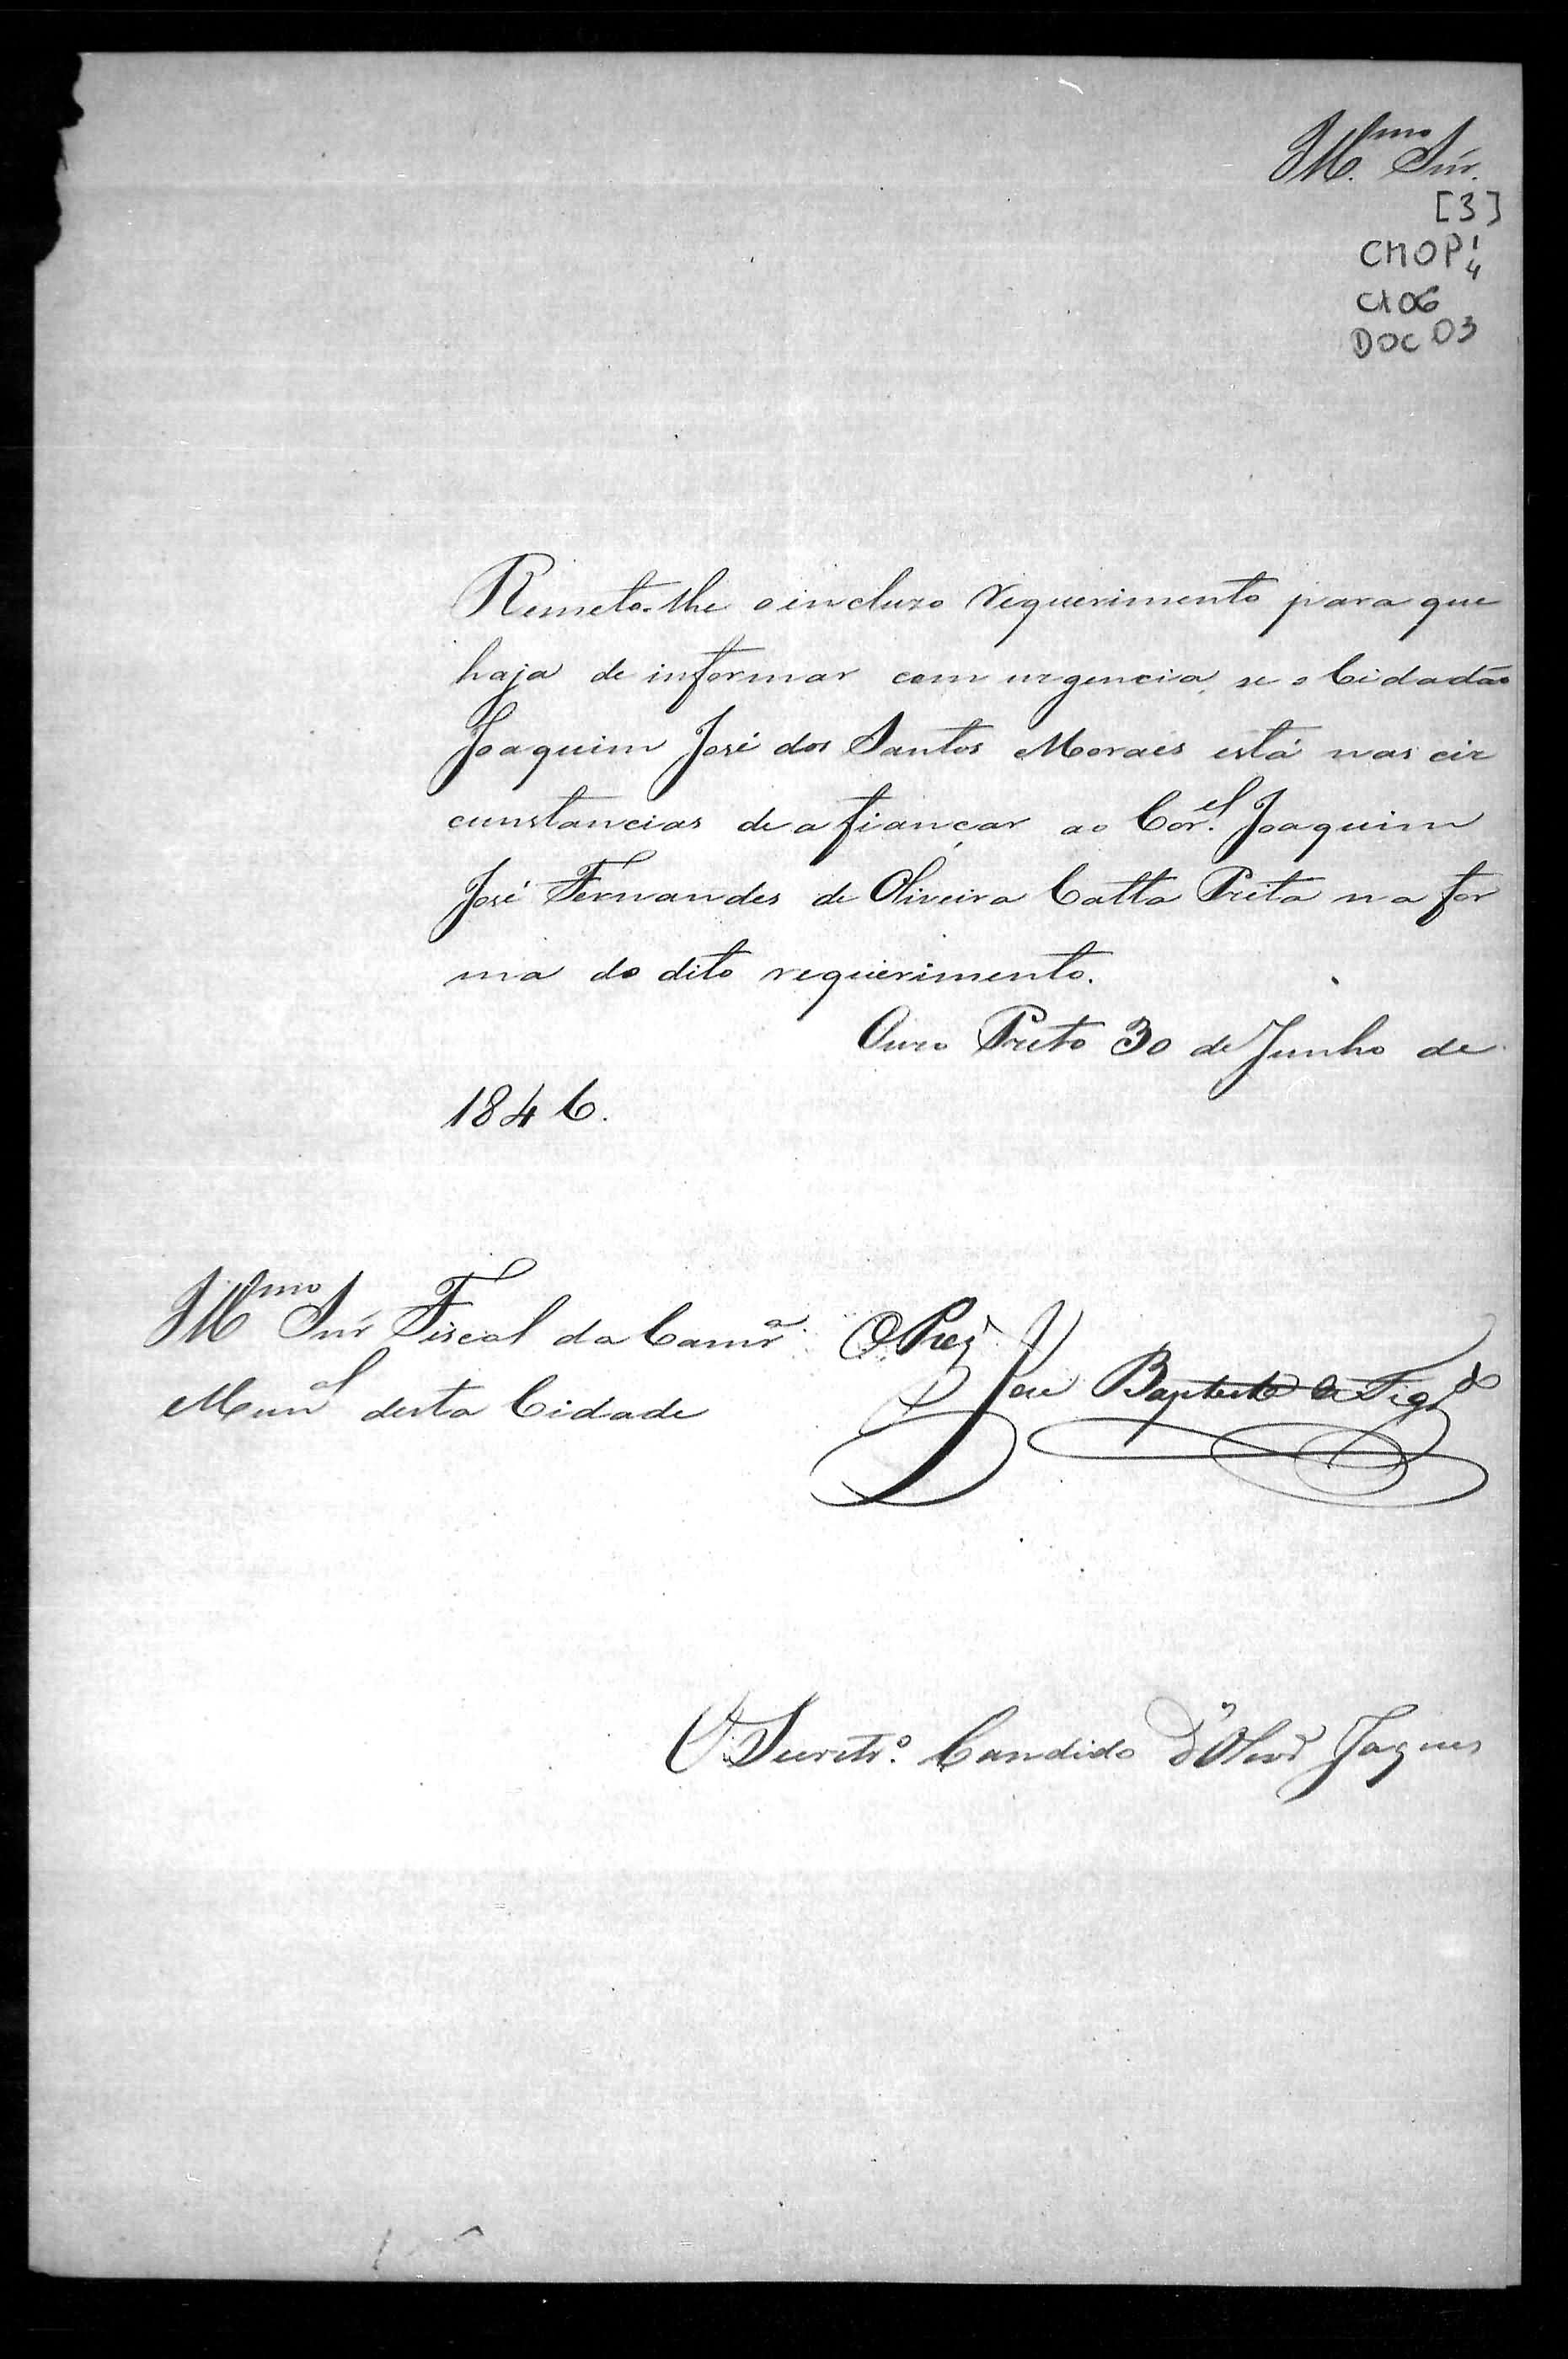 Illmo. Snr.
[3]
CMOP 1/4
CX 06
DOC 03
Remeto-lhe o incluzo requerimento para que
haja de informar com urgencia, se o Cidadão
Joaquim José dos Santos Moraes está nas cir
cunstancias de afiançar ao Corel. Joaquim
José Fernandes de Oliveira Catta Preta na for
ma do dito requerimento.
Ouro Preto 30 de Junho de
1846.
Illmo Snr Fiscal da Camra.
Munal desta Cidade
O Prez
José Baptista de Figdo
O Secretro. Candido d'Olivra Jaques